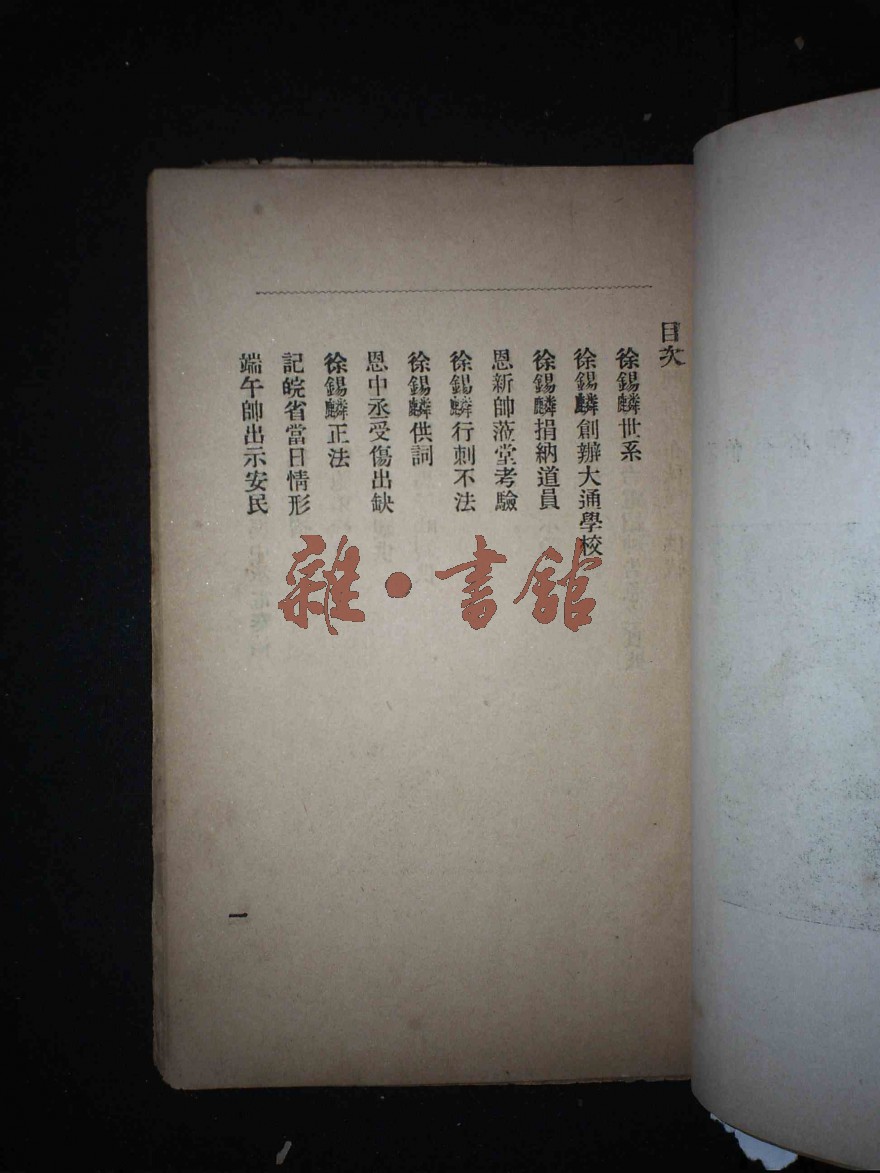 目次
徐錫麟世系
徐錫麟創辦大通學校
徐錫麟捐納道員
恩新帥蒞堂考驗
徐錫麟行刺不法
徐錫麟供詞
恩中丞受傷出缺
徐錫麟正法
記皖省當日情形
端午帥出示安民
一
雜·書館